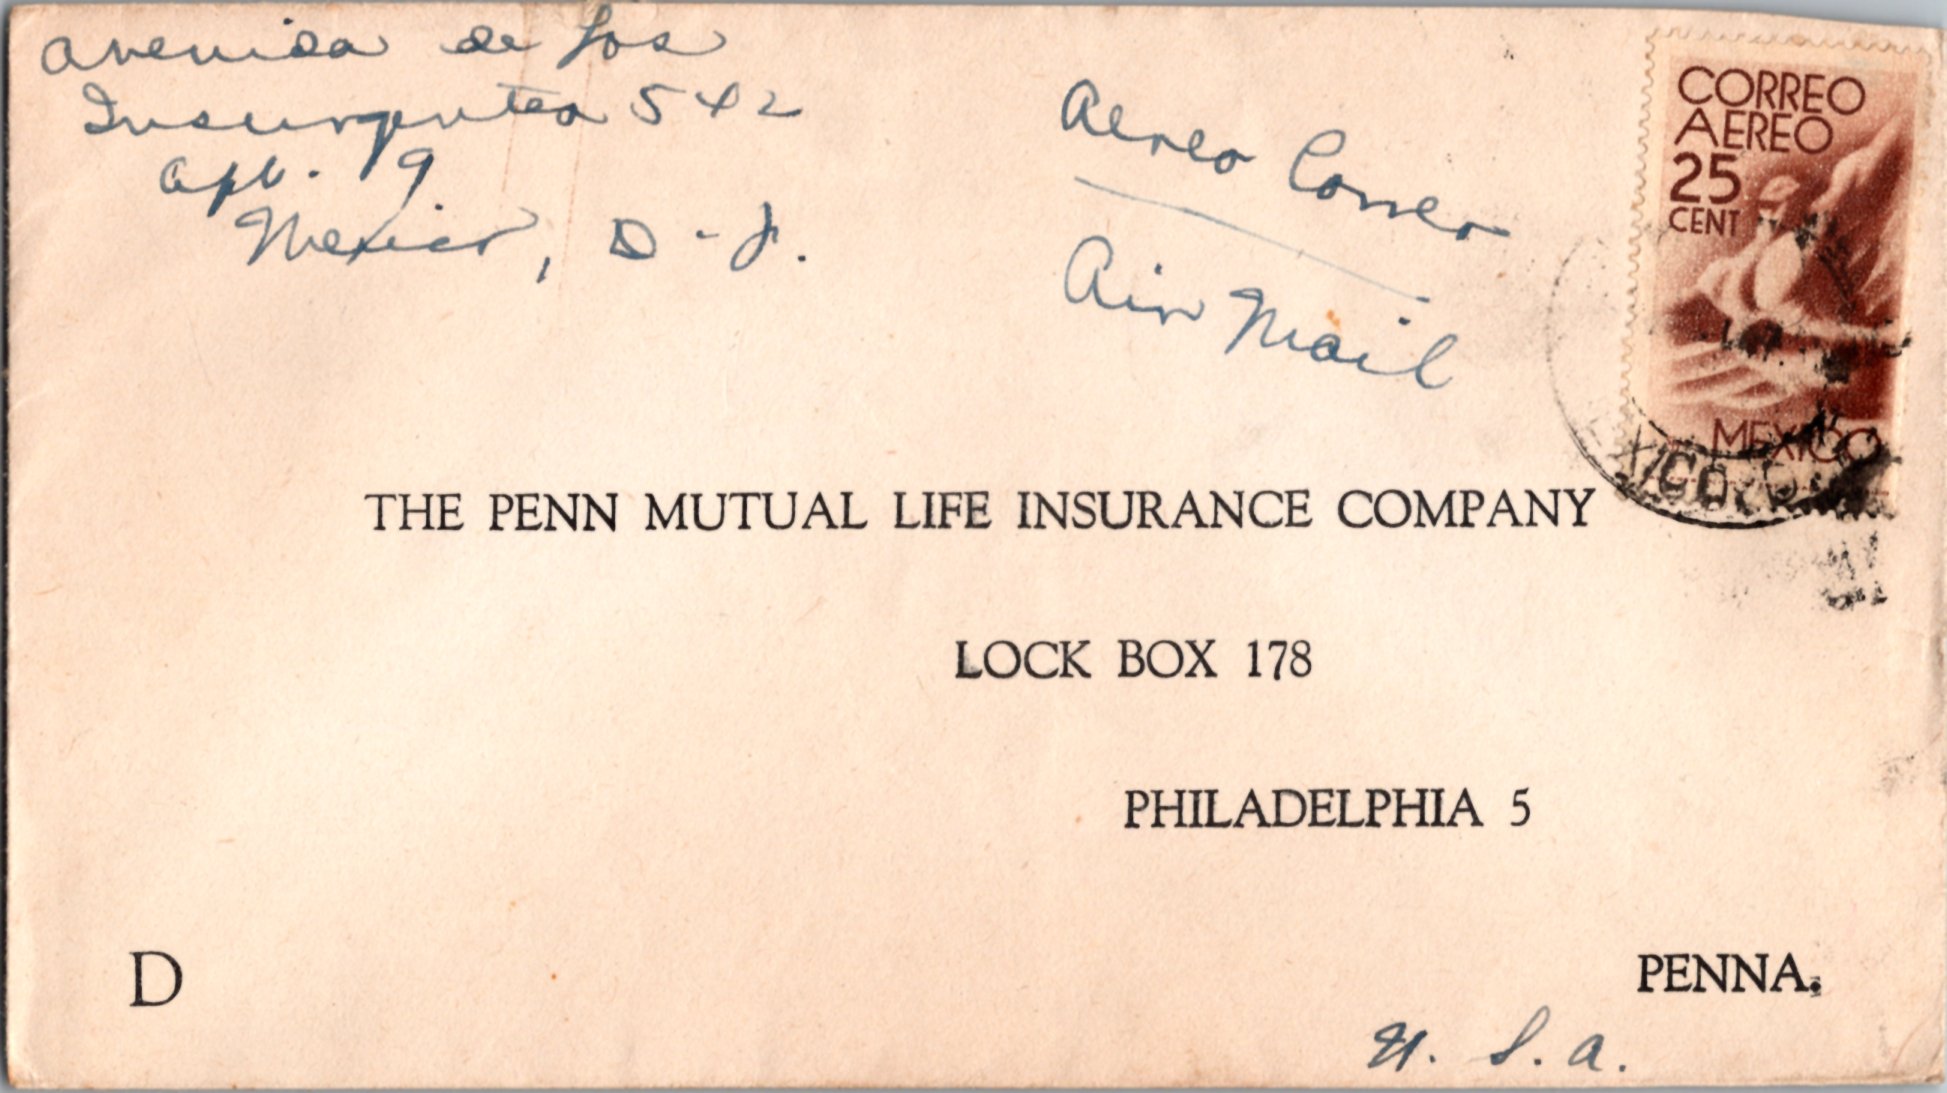 Avenida de los
Insurgentes 542
Apt. 9
Mexico, D-F.
Aereo Correo
Air Mail
CORREO
AEREO
25
CENT
MEXICO
THE PENN MUTUAL LIFE INSURANCE COMPANY
LOCK BOX 178
PHILADELPHIA 5
D
PENNA.
U. S. A.